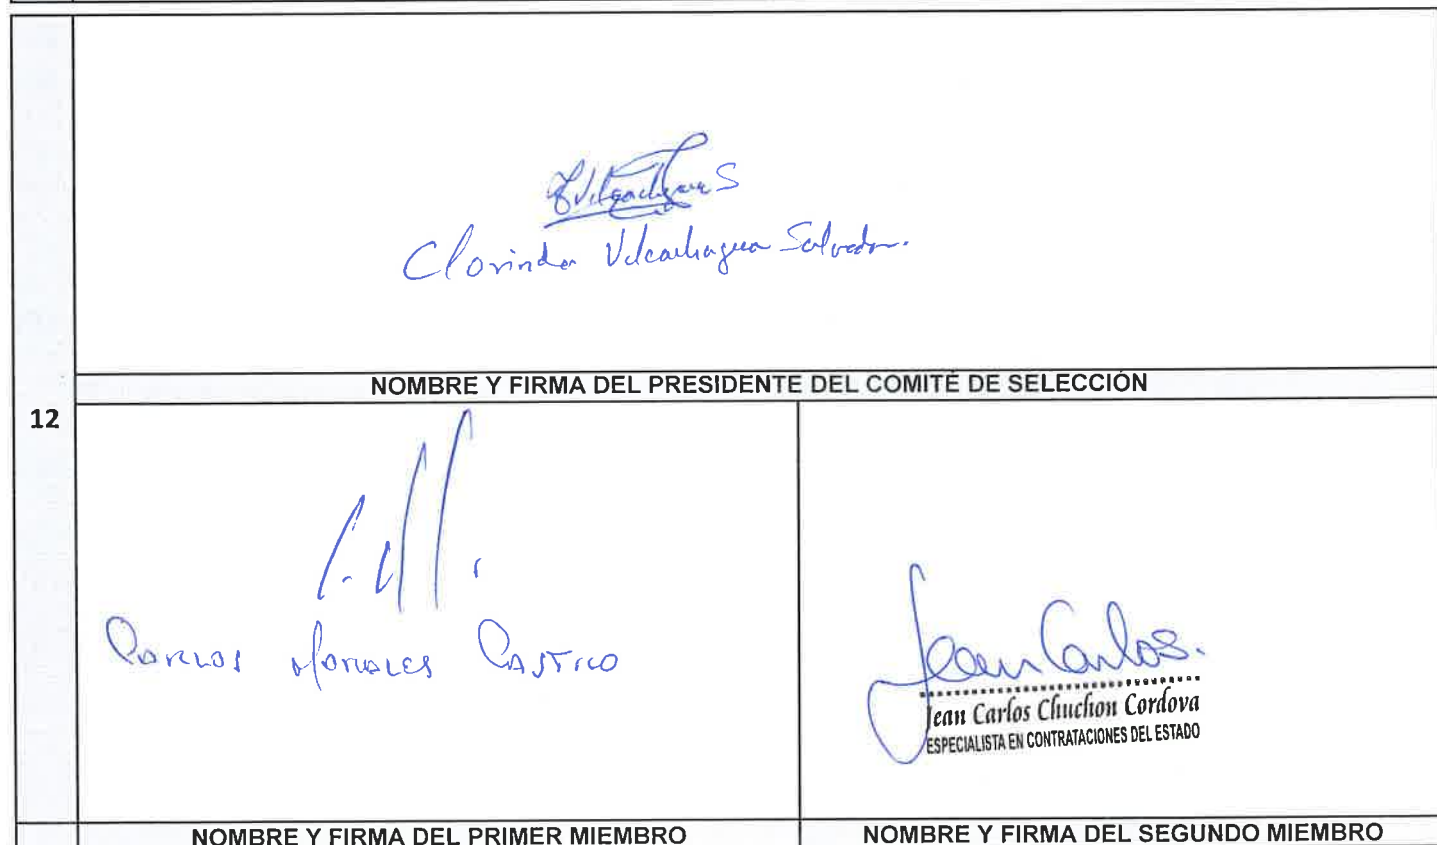 Clorinda Vilcachagua Salvador.
NOMBRE Y FIRMA DEL PRESIDENTE DEL COMITÉ DE SELECCIÓN
12
Carlos Morales Castro
Jean Carlos.
Jean Carlos Chuchon Cordova
ESPECIALISTA EN CONTRATACIONES DEL ESTADO
NOMBRE Y FIRMA DEL PRIMER MIEMBRO
NOMBRE Y FIRMA DEL SEGUNDO MIEMBRO